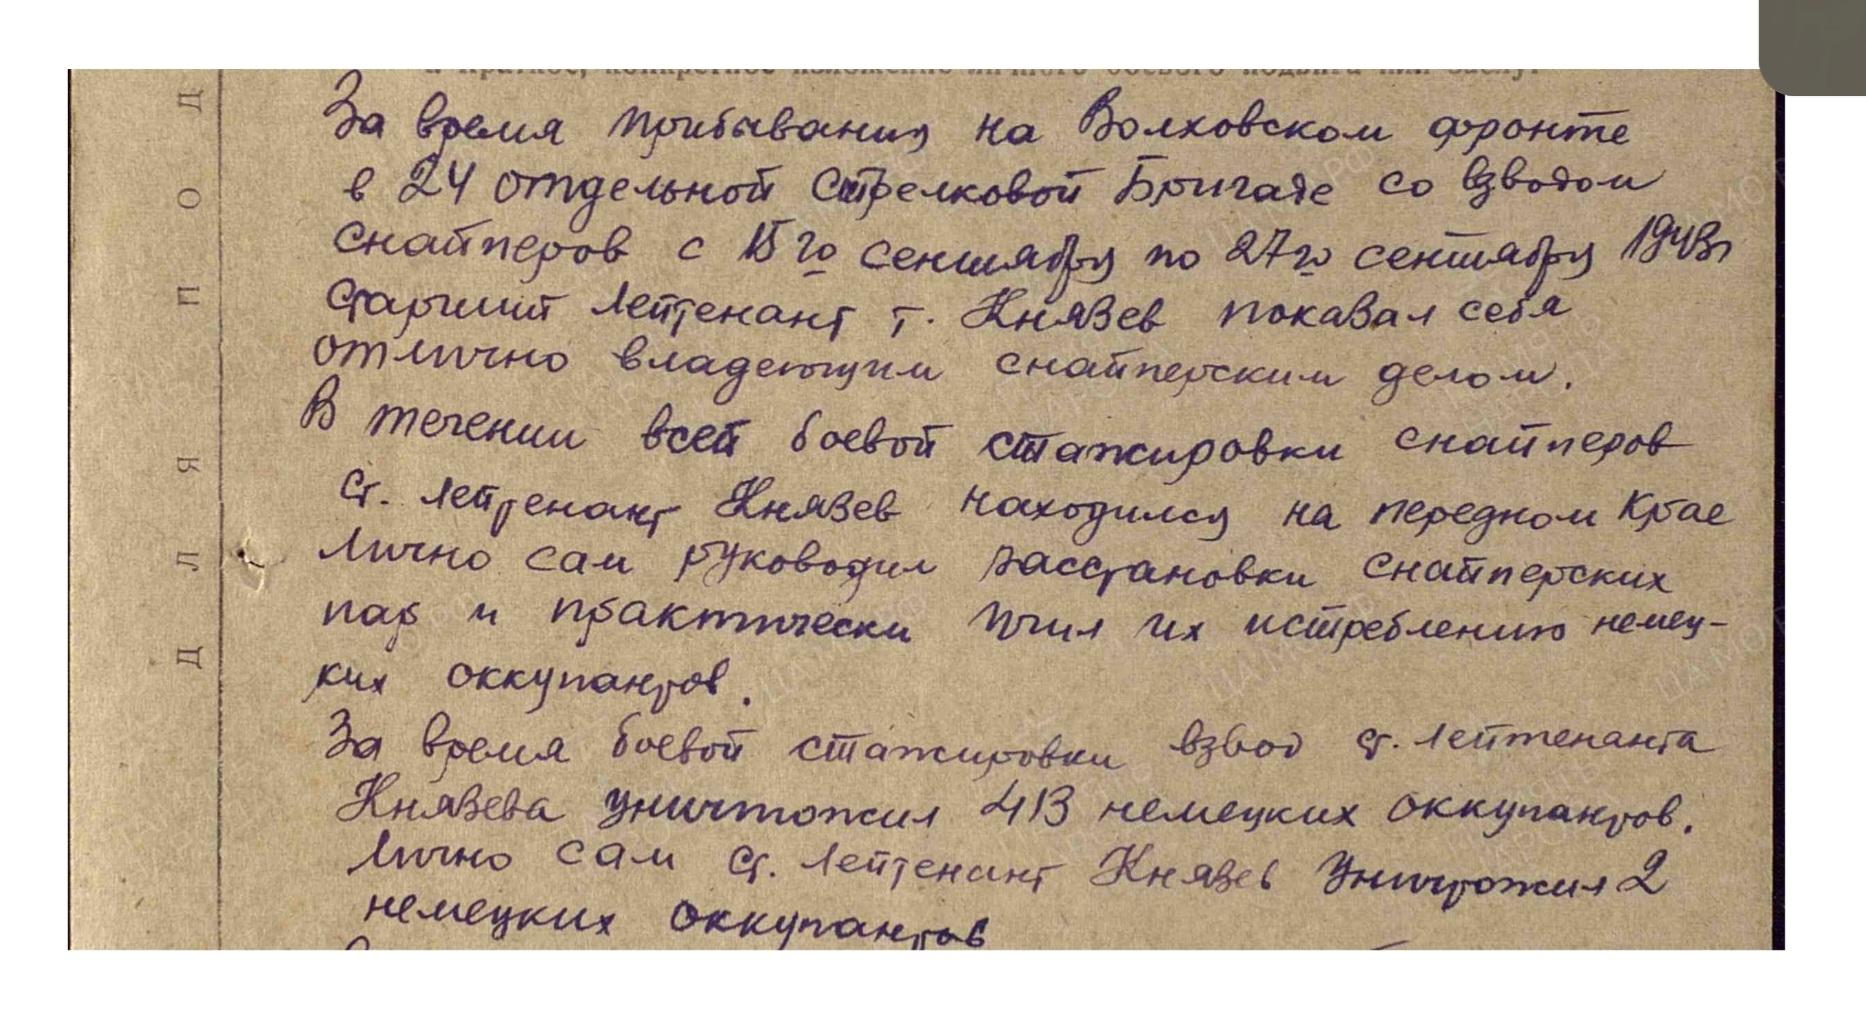 и краткое, конкретное изложение личного боевого подвига или заслуг
За время прибывания на Волховском фронте
в 24 отдельной стрелковой Бригаде со взводом
снайперов с 15го сентября по 27го сентября 1943г
старший лейтенант т. Князев показал себя
отлично владеющим снайперским делом.
В течении всей боевой стажировки снайперов
ст. лейтенант Князев находился на переднем крае
лично сам руководил расстановки снайперских
пар и практически учил их истреблению немец-
ких оккупантов.
За время боевой стажировки взвод ст. лейтенанта
Князева уничтожил 413 немецких оккупантов.
Лично сам ст. лейтенант Князев уничтожил 2
немецких оккупантов
ДЛЯ ПОД